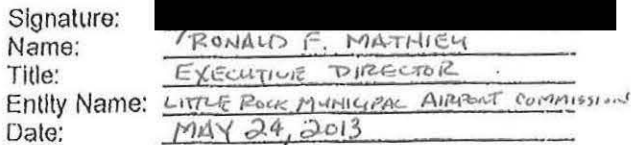 Signature:
Name: RONALD F. MATHIEU
Title: EXECUTIVE DIRECTOR
Entity Name: LITTLE ROCK MUNICIPAL AIRPORT COMMISSION
Date: MAY 24, 2013